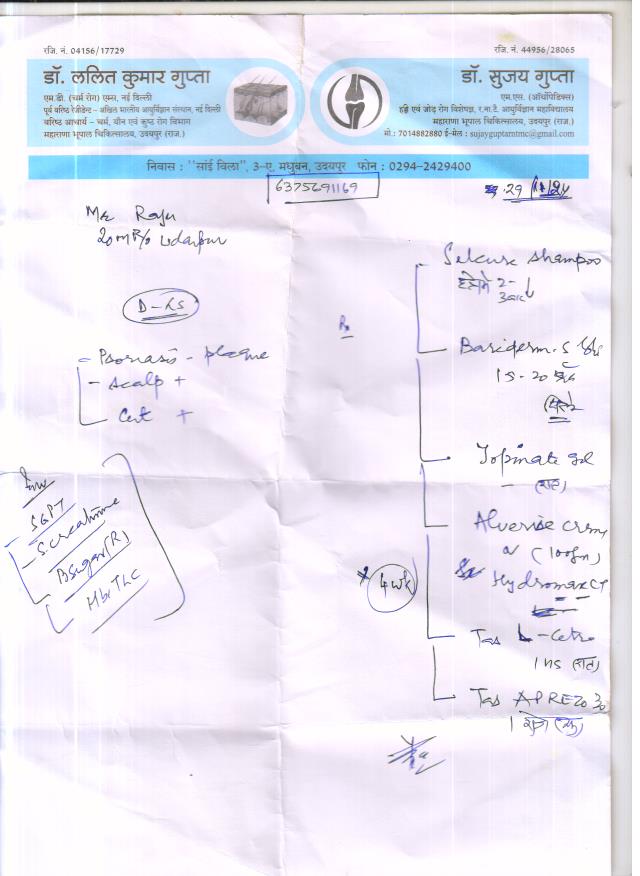 रजि. नं. 04156/17729
रजि. नं. 44956/28065
डॉ. ललित कुमार गुप्ता
एम.डी. (चर्म रोग) एम्स, नई दिल्ली
पूर्व वरिष्ठ रेजीडेन्ट – अखिल भारतीय आयुर्विज्ञान संस्थान, नई दिल्ली
वरिष्ठ आचार्य – चर्म, यौन एवं कुष्ठ रोग विभाग
महाराणा भूपाल चिकित्सालय, उदयपुर (राज.)
डॉ. सुजय गुप्ता
एम.एस. (ऑर्थोपिडिक्स)
हड्डि एवं जोड़ रोग विशेषज्ञ, र.ना.टै. आयुर्विज्ञान महाविद्यालय
महाराणा भूपाल चिकित्सालय, उदयपुर (राज.)
मो.: 7014882880 ई-मेल : sujayguptarntmc@gmail.com
निवास : "सांई विला", 3-ए, मधुबन, उदयपुर फोन : 0294-2429400
6375691169
29
Mr Raju
20 M R/o Udaipur
Psoriasis - plaque
- Scalp +
+
SGPT
S. creatinine
B sugar (R)
Hb TLC
Rx
Selcure shampoo
2-
Bariderm-S
15-20
Topinate gel
(रात)
(100gm)
Hydromax
4 wk
Tab L-Cetro
1 HS (रात)
Tab APREZO 30
1